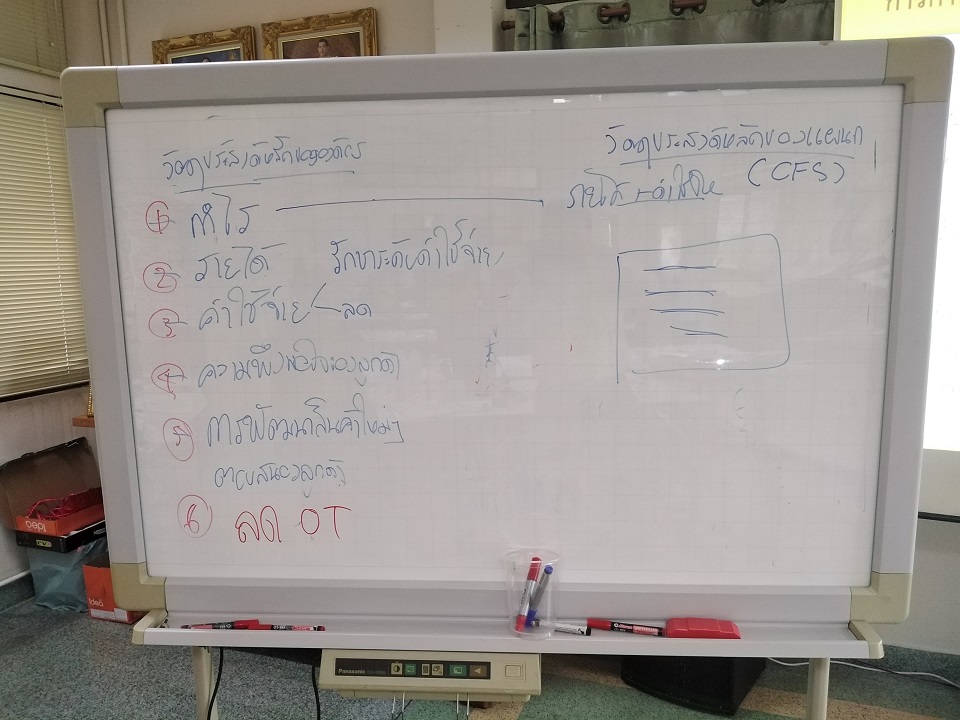 วัตถุประสงค์หลักขององค์กร
① กำไร
② รายได้ รักษาระดับค่าใช้จ่าย
③ ค่าใช้จ่าย ลด
④ ความพึงพอใจของลูกค้า
⑤ การพัฒนาสินค้าใหม่ๆ
ตอบสนองลูกค้า
⑥ ลด OT
วัตถุประสงค์หลักของแผนก
(CFS)
รายได้
Panasonic
idea
idea